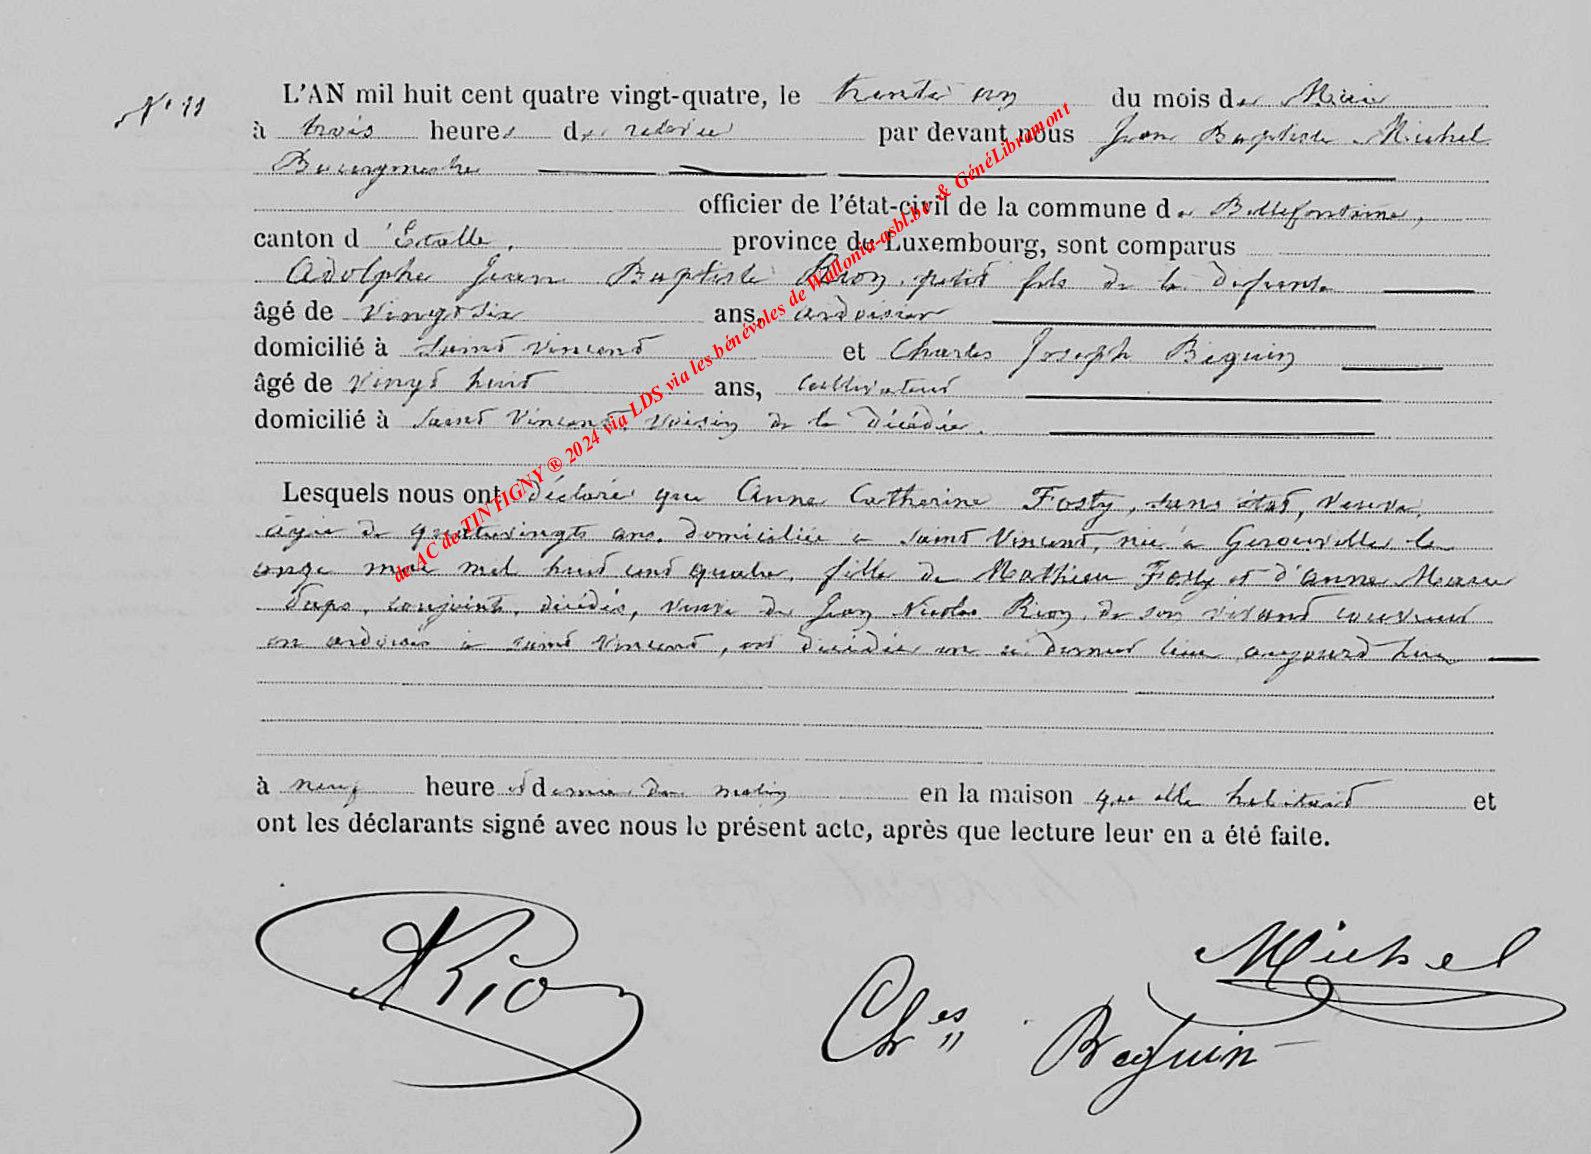 N° 11
L'AN mil huit cent quatre vingt-quatre, le trente un du mois de Mai
à trois heures de relevée par devant nous Jean Baptiste Michel
Bourgmestre
officier de l'état-civil de la commune de Bellefontaine,
canton d'Etalle, province de Luxembourg, sont comparus
Adolphe Jean Baptiste Rion, petit fils de la défunte
âgé de vingt six ans, ardoisier
domicilié à Saint Vincent et Charles Joseph Beguin
âgé de vingt huit ans, cultivateur
domicilié à Saint Vincent, voisin de la décédée.
Lesquels nous ont déclaré que Anne Catherine Fosty, sans état, veuve,
âgée de quatrevingts ans, domiciliée à Saint Vincent, née à Gerouville le
onze mai mil huit cent quatre, fille de Mathieu Fosty et d'Anne Marie
conjoints, décédés, veuve de Jean Nicolas Rion, de son vivant couvreur
en ardoises à Saint Vincent, est décédée en ce dernier lieu aujourd'hui
à neuf heure et demie du matin en la maison que elle habitait et
ont les déclarants signé avec nous le présent acte, après que lecture leur en a été faite.
ARion
Michel
Ch es Beguin
de AC de TINTIGNY ® 2024 via LDS via les bénévoles de Wallonia-asbl.be & GénéLibramont